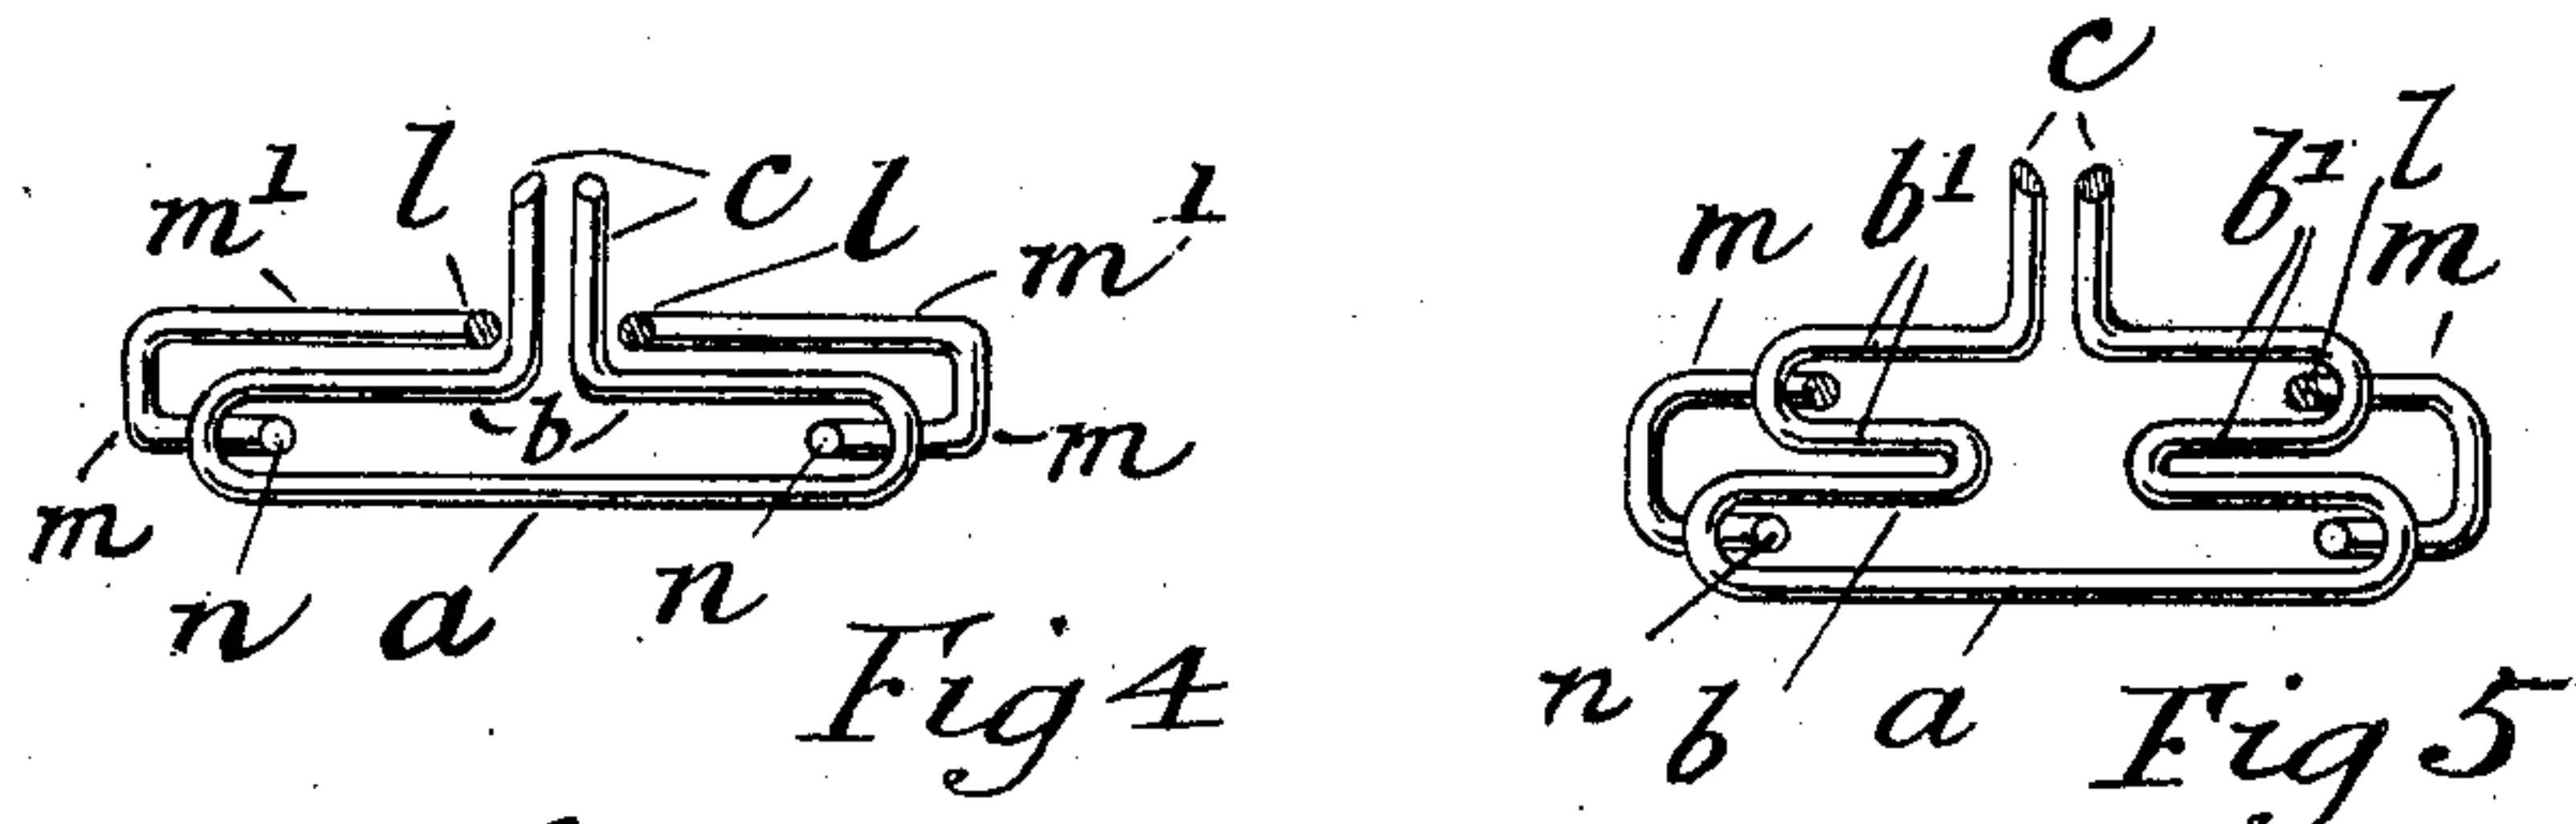 m¹ l c l m¹
b
m m
n a n
Fig 4
c
m b¹ b¹ l m
n b a
Fig 5